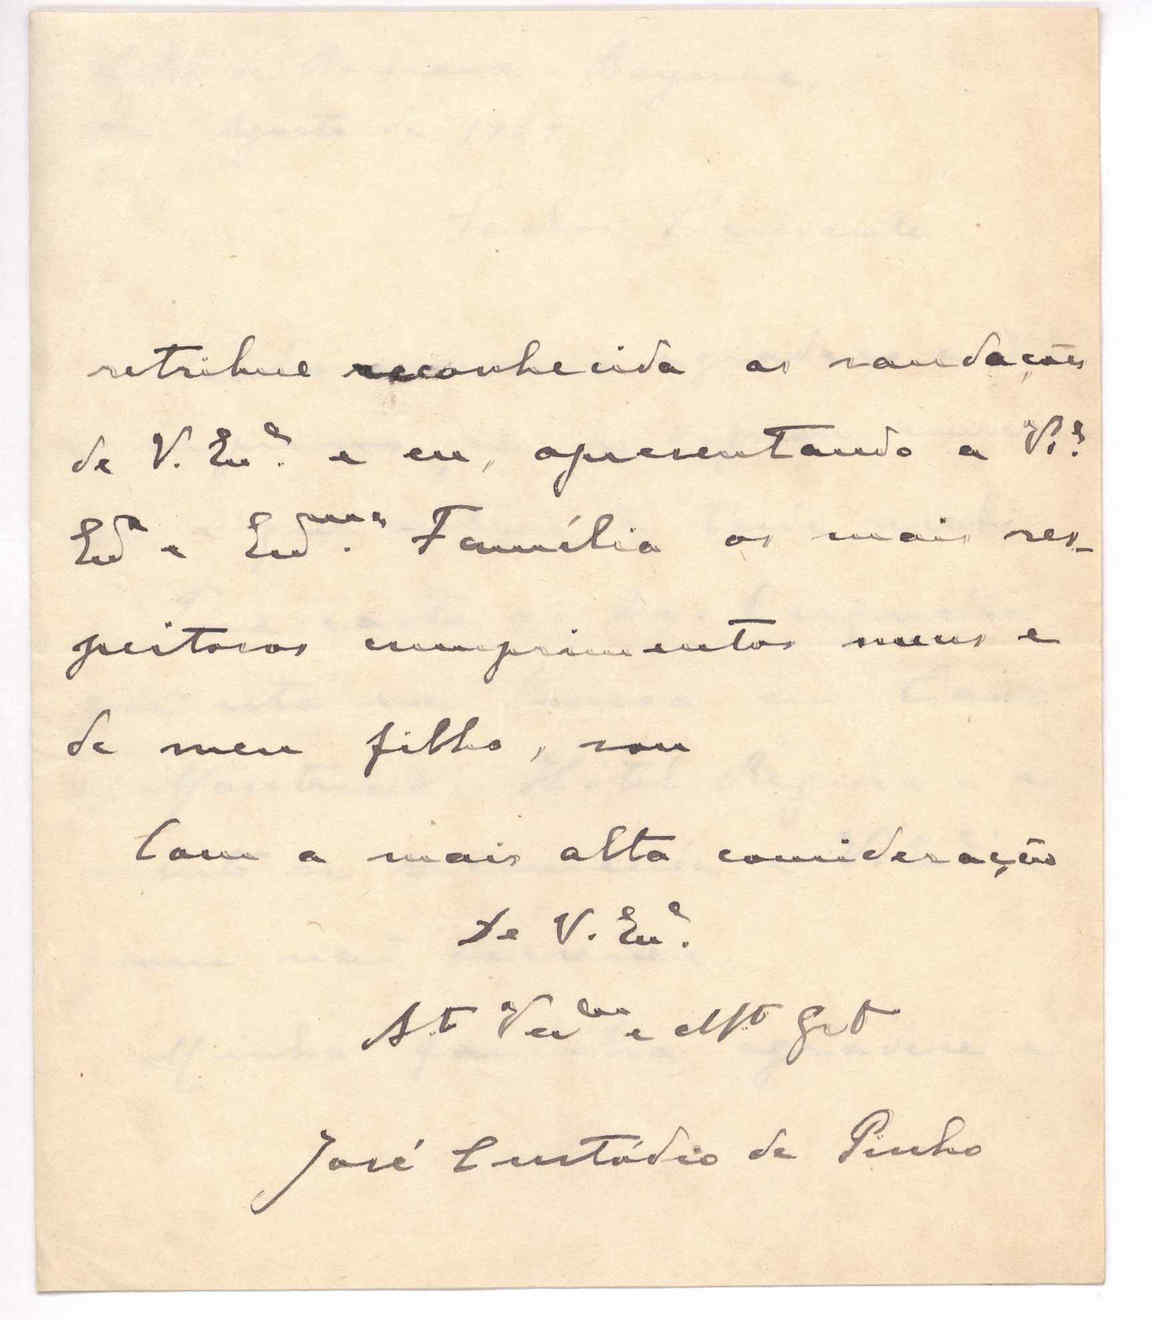 retribue reconhecida as saudações
de V. Exª. e eu, apresentando a Vª.
Exª e Exmª. Família os mais res-
peitosos cumprimentos meus e
de meu filho, sou
Com a mais alta consideração
De V. Exª.
At. Venºr e
José Custódio de Pinho